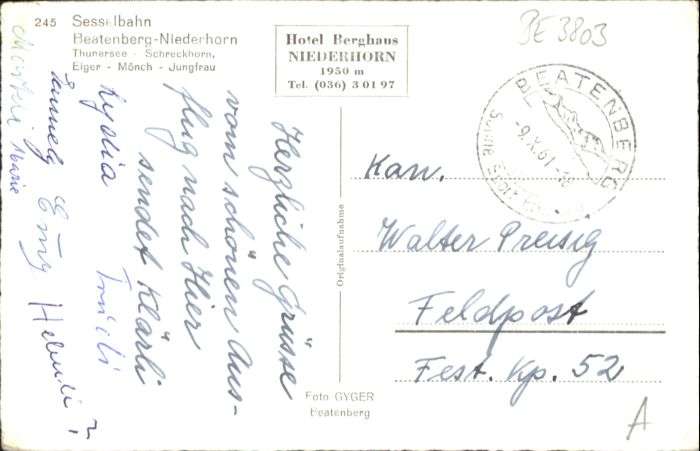 245 Sesselbahn
Beatenberg-Niederhorn
Thunersee - Schreckhorn,
Eiger - Mönch - Jungfrau
Hotel Berghaus
NIEDERHORN
1950 m
Tel. (036) 3 01 97
BE 3803
BEATENBERG
-9.X.61.-18
Herzliche Grüsse
vom schönen Aus-
flug nach Hier
sendet Klärli
Lydia Trüeli
Emmy Heludi ?
Marie
Originalaufnahme
Kan.
Walter Preisig
Feldpost
Fest. Kp. 52
Foto GYGER
Beatenberg
A